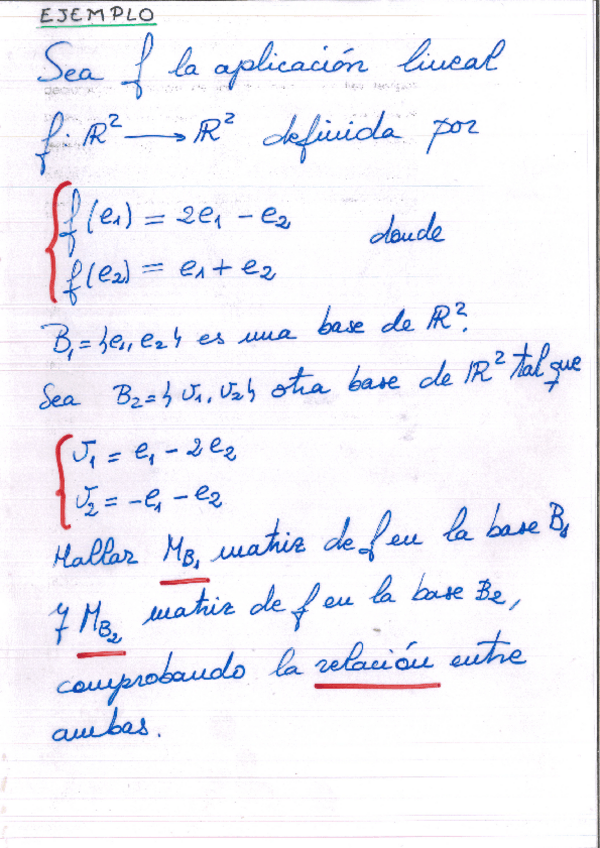 EJEMPLO
Sea f la aplicación lineal
f: ℝ² ⟶ ℝ² definida por
f(e₁) = 2e₁ - e₂
donde
f(e₂) = e₁ + e₂
B₁ = {e₁, e₂} es una base de ℝ².
Sea B₂ = {v₁, v₂} otra base de ℝ² tal que
v₁ = e₁ - 2e₂
v₂ = -e₁ - e₂
Hallar M_B₁ matriz de f en la base B₁
y M_B₂ matriz de f en la base B₂,
comprobando la relación entre
ambas.